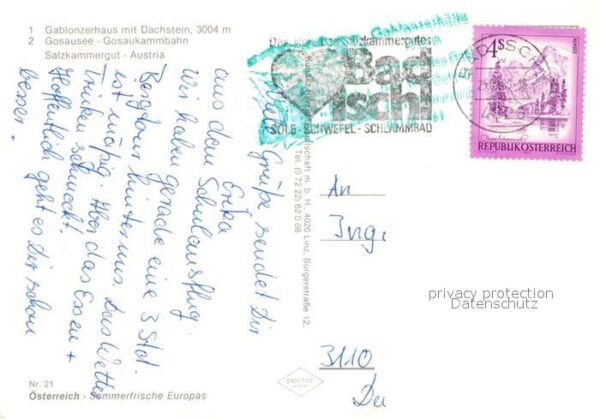 1 Gablonzerhaus mit Dachstein, 3004 m
2 Gosausee - Gosaukammbahn
Salzkammergut - Austria
Viele Grüße sendet Dir
Erika
aus dem Schulausflug.
Wir haben gerade eine 3 Std.
Bergtour hinter uns. Das Wetter
ist mäßig. Aber das Essen +
Trinken schmeckt.
Hoffentlich geht es Dir schon
besser.
Nr. 21
Österreich - Sommerfrische Europas
Gablonzerhütte
Das Herz des Salzkammergutes
Bad
Ischl
SOLE - SCHWEFEL - SCHLAMMBAD
4 S
REPUBLIK ÖSTERREICH
schaft m. b. H., 4020 Linz, Bürgerstraße 12,
Tel. (0 72 22) 62 0 08
An
Inge
3110
privacy protection
Datenschutz